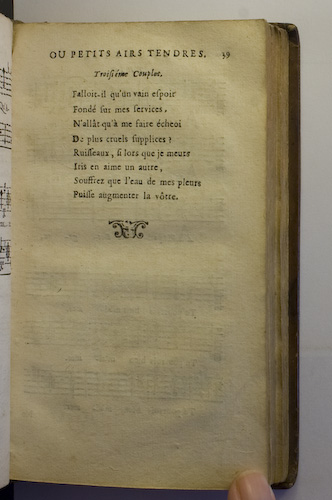 OU PETITS AIRS TENDRES. 39
Troisiéme Couplet.
Falloit-il qu'un vain espoir
Fondé sur mes services,
N'allât qu'à me faire écheoi
De plus cruels supplices?
Ruisseaux, si lors que je meurs
Iris en aime un autre,
Souffrez que l'eau de mes pleurs
Puisse augmenter la vôtre.